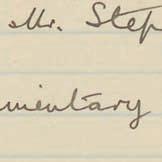 Mr. Step
mentary